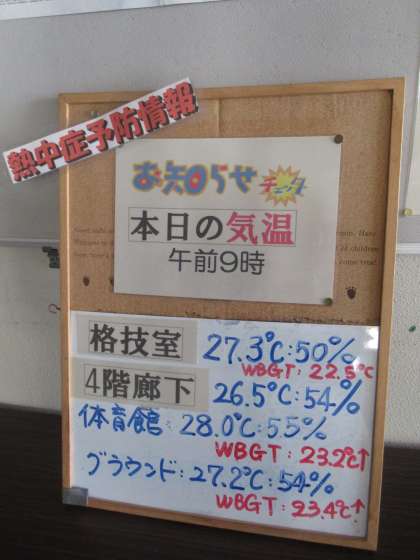 熱中症予防情報
お知らせ チェック
本日の気温
午前9時
格技室 27.3℃:50%
WBGT:22.5℃
4階廊下 26.5℃:54%
体育館:28.0℃:55%
WBGT:23.2℃↑
グラウンド:27.2℃:54%
WBGT:23.4℃↑